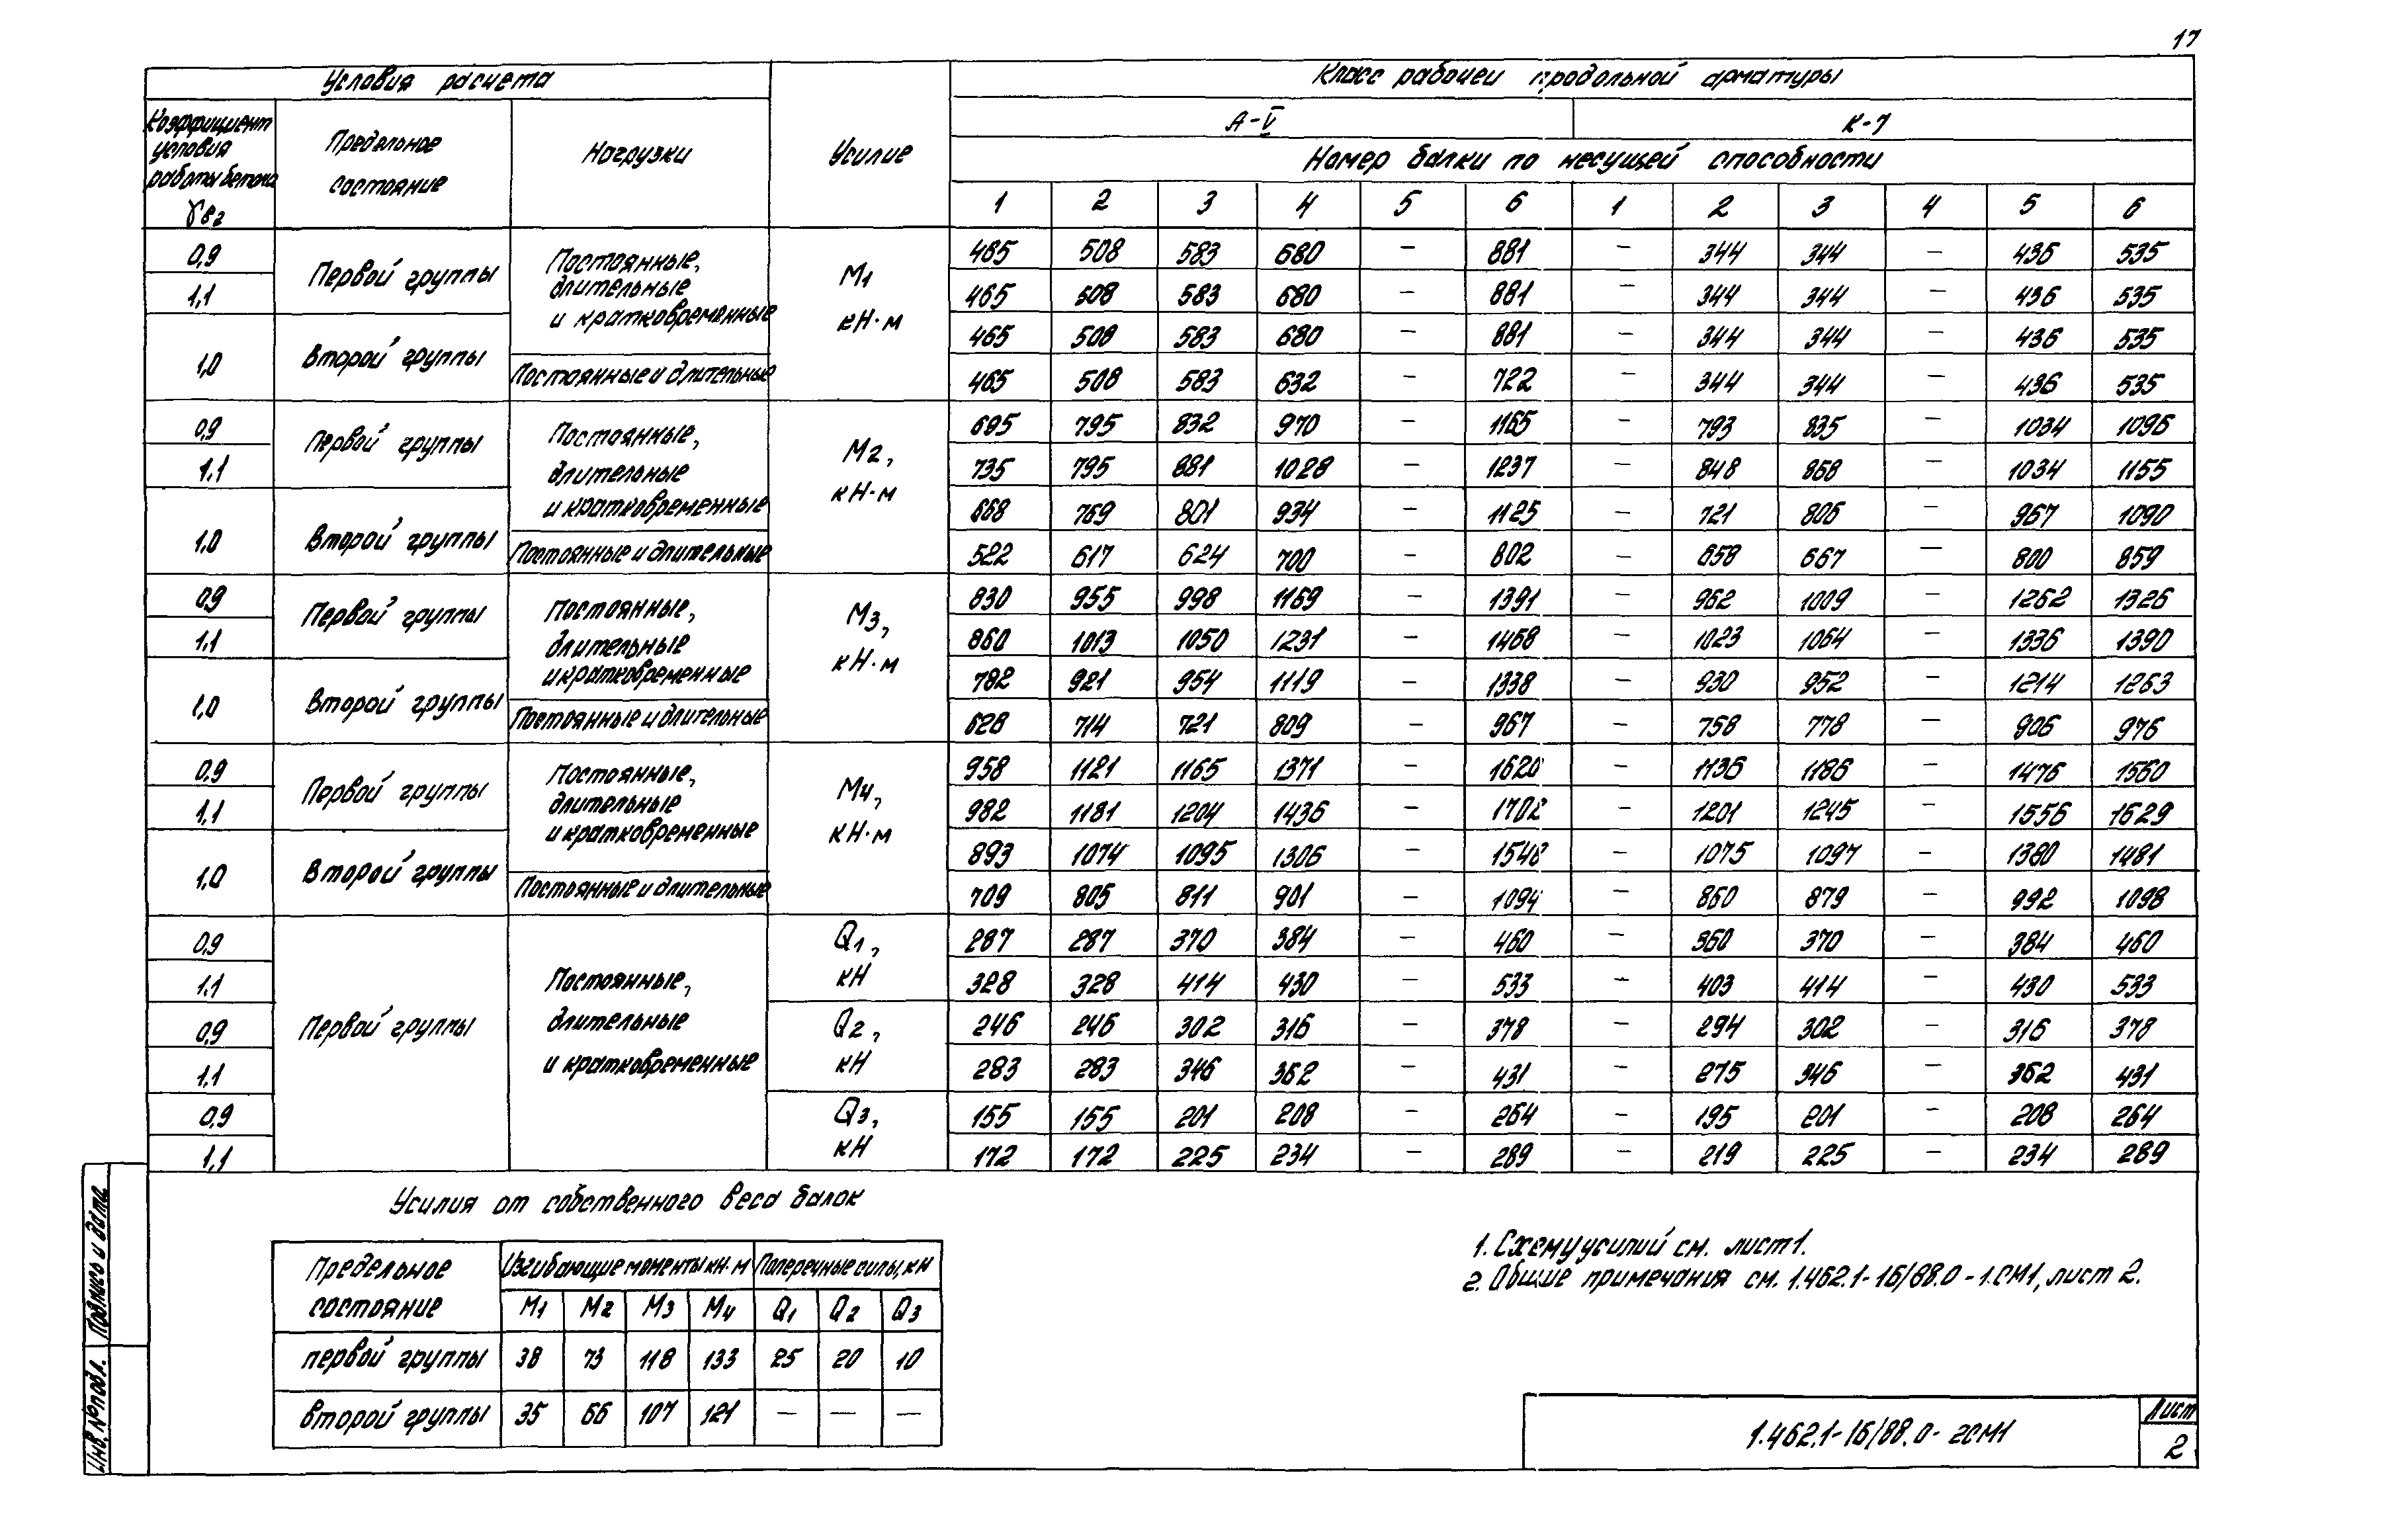 17
Условия расчета
Класс рабочей продольной арматуры
Коэффициент условия работы бетона γв2
Предельное состояние
Нагрузки
Усилие
А-V
К-7
Номер балки по несущей способности
1 2 3 4 5 6 1 2 3 4 5 6
0,9 Первой группы Постоянные, длительные и кратковременные М1 кН·м 465 508 583 680 – 881 – 344 344 – 436 535
1,1 465 508 583 680 – 881 – 344 344 – 436 535
1,0 Второй группы 465 508 583 680 – 881 – 344 344 – 436 535
Постоянные и длительные 465 508 583 632 – 722 – 344 344 – 436 535
0,9 Первой группы Постоянные, длительные и кратковременные М2, кН·м 695 795 832 970 – 1165 – 793 835 – 1034 1096
1,1 735 795 881 1028 – 1237 – 848 868 – 1034 1155
1,0 Второй группы 668 769 801 934 – 1125 – 721 806 – 967 1090
Постоянные и длительные 522 617 624 700 – 802 – 658 667 – 800 859
0,9 Первой группы Постоянные, длительные и кратковременные М3, кН·м 830 955 998 1169 – 1391 – 962 1009 – 1262 1326
1,1 860 1013 1050 1231 – 1468 – 1023 1064 – 1336 1390
1,0 Второй группы 782 921 954 1119 – 1338 – 930 952 – 1214 1263
Постоянные и длительные 628 714 721 809 – 967 – 758 778 – 906 976
0,9 Первой группы Постоянные, длительные и кратковременные М4, кН·м 958 1121 1165 1371 – 1620 – 1136 1186 – 1476 1560
1,1 982 1181 1204 1436 – 1702 – 1201 1245 – 1556 1629
1,0 Второй группы 893 1074 1095 1306 – 1548 – 1075 1097 – 1380 1481
Постоянные и длительные 709 805 811 901 – 1094 – 860 879 – 992 1098
0,9 Первой группы Постоянные, длительные и кратковременные Q1, кН 287 287 370 384 – 460 – 360 370 – 384 460
1,1 328 328 414 430 – 533 – 403 414 – 430 533
0,9 Q2, кН 246 246 302 316 – 378 – 294 302 – 316 378
1,1 283 283 346 362 – 431 – 275 346 – 362 431
0,9 Q3, кН 155 155 201 208 – 264 – 195 201 – 208 264
1,1 172 172 225 234 – 289 – 219 225 – 234 289
Усилия от собственного веса балок
Предельное состояние
Изгибающие моменты кн·м
Поперечные силы, кн
М1 М2 М3 М4 Q1 Q2 Q3
первой группы 38 73 118 133 25 20 10
второй группы 35 66 107 121 – – –
1. Схему усилий см. лист 1.
2. Общие примечания см. 1.462.1-16/88.0-1.СМ1, лист 2.
1.462.1-16/88.0-2СМ1
Лист
2
Подпись и дата
Инв. № подл.